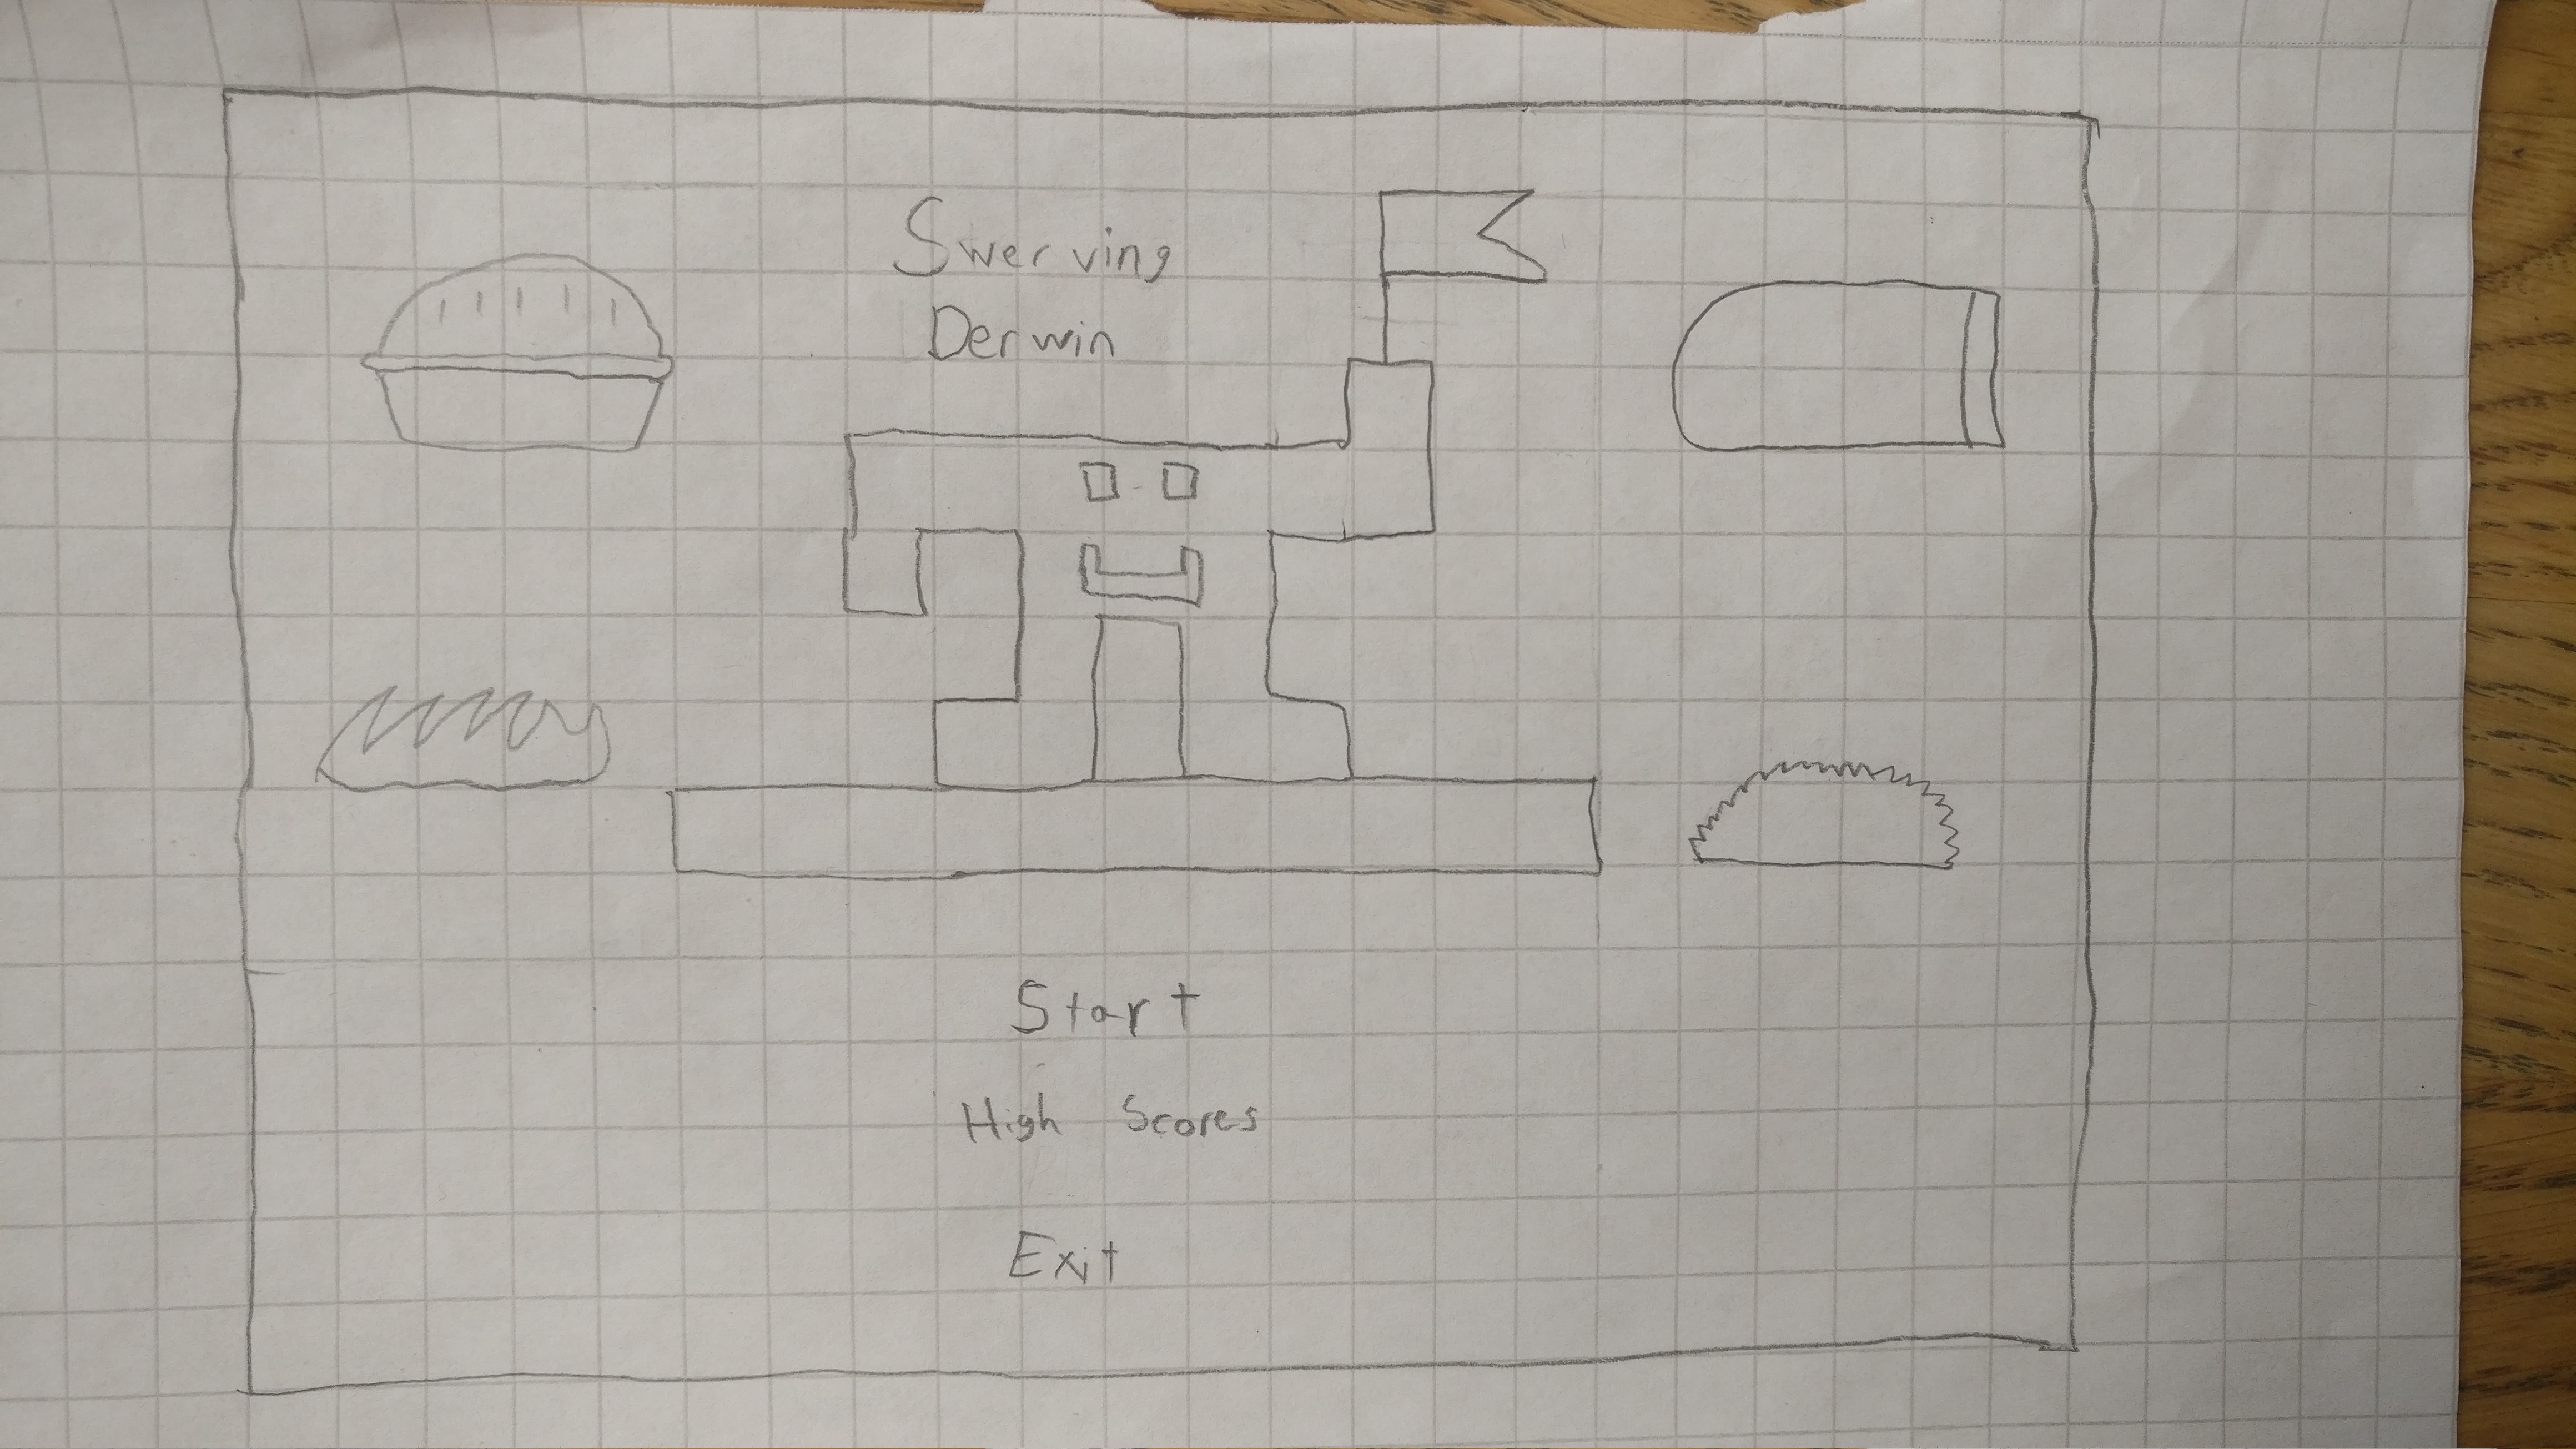 Swerving
Derwin
Start
High Scores
Exit